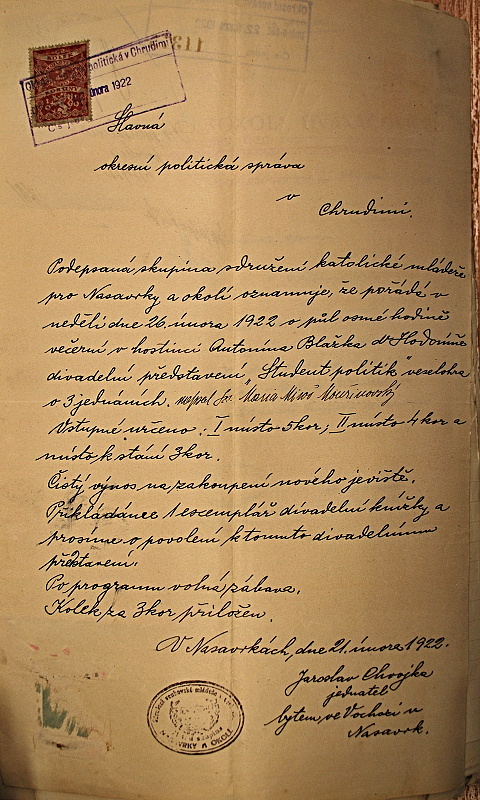 politická v Chrudimi
února 1922
Slavná
okresní politická správa
v
Chrudimi.
Podepsaná skupina sdružení katolické mládeže
pro Nasavrky a okolí oznamuje, že pořádá v
neděli dne 26. února 1922 o půl osmé hodině
večerní v hostinci Antonína Blažka v Hodoníně
divadelní představení „Student politik" veselohra
o 3 jednáních. napsal Maria Miloš
Vstupné určeno: I místo 5 kor; II místo 4 kor a
místo k stání 3 kor.
Čistý výnos na zakoupení nového jeviště.
Přikládánce 1 escemplář divadelní knížky a
prosíme o povolení k tomuto divadelnímu
představení.
Po programu volná zábava.
Kolek za 3 kor přiložen.
V Nasavrkách, dne 21. února 1922.
Jaroslav Chvojka
jednatel
bytem, ve Vochozi u
Nasavrk.
NASAVRKY A OKOLÍ